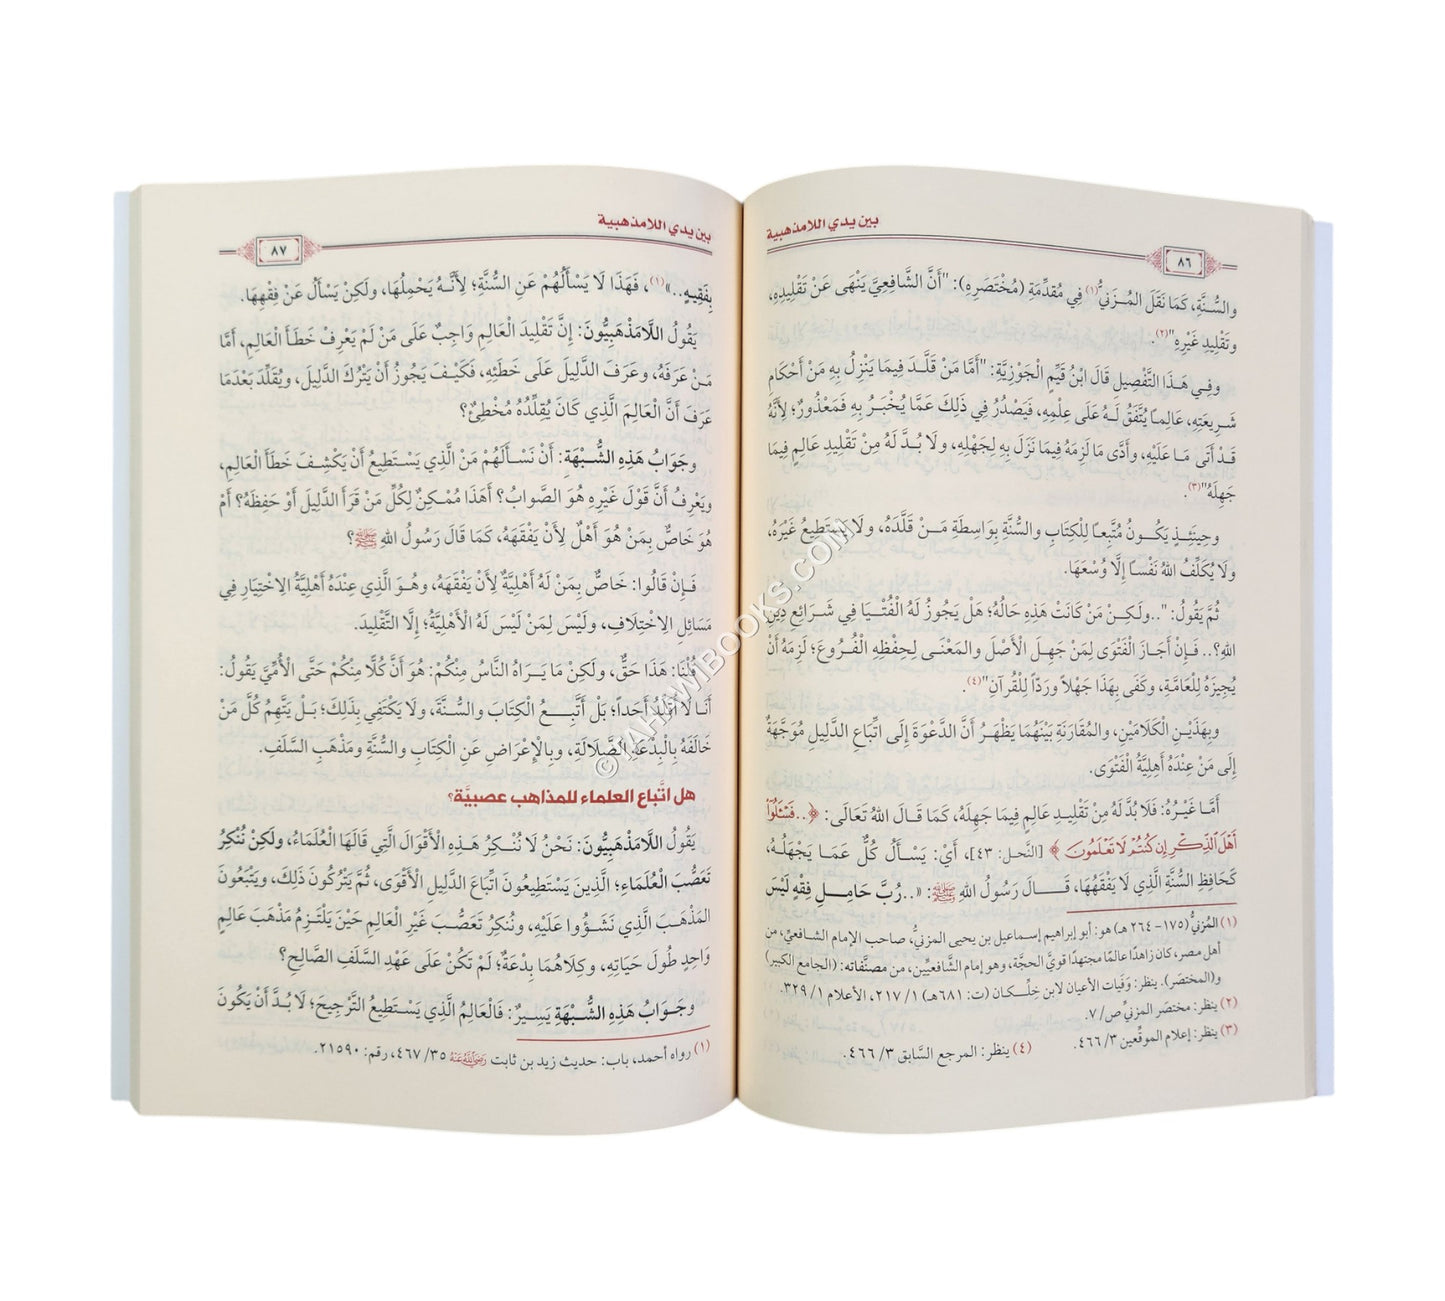 بين يدي اللامذهبية
٨٦
والسُّنَّةِ، كَمَا نَقَلَ المُزَنيُّ(١) فِي مُقدِّمَةِ (مُخْتَصَرِهِ): "أَنَّ الشَّافِعِيَّ يَنْهَى عَنْ تَقْلِيدِهِ،
وتَقْلِيدِ غَيْرِهِ"(٢).
وفِي هَذَا التَّفْصِيلِ قَالَ ابْنُ قَيِّمِ الْجَوْزِيَّةِ: "أَمَّا مَنْ قَلَّدَ فِيمَا يَنْزِلُ بِهِ مِنْ أَحْكَامِ
شَرِيعَتِهِ، عَالِماً يُتَّفَقُ لَهُ عَلَى عِلْمِهِ، فَيَصْدُرُ فِي ذَلِكَ عَمَّا يُخْبَرُ بِهِ فَمَعْذُورٌ؛ لِأَنَّهُ
قَدْ أَتَى مَا عَلَيْهِ، وأَدَّى مَا لَزِمَهُ فِيمَا نَزَلَ بِهِ لِجَهْلِهِ، ولَا بُدَّ لَهُ مِنْ تَقْلِيدِ عَالِمٍ فِيمَا
جَهِلَهُ"(٣).
وحِينَئِذٍ يَكُونُ مُتَّبِعاً لِلْكِتَابِ والسُّنَّةِ بِوَاسِطَةِ مَنْ قَلَّدَهُ، ولَا يَسْتَطِيعُ غَيْرَهُ،
ولَا يُكَلِّفُ اللهُ نَفْسًا إِلَّا وُسْعَهَا.
ثُمَّ يَقُولُ: "..ولَكِنْ مَنْ كَانَتْ هَذِهِ حَالُهُ؛ هَلْ يَجُوزُ لَهُ الْفُتْيَا فِي شَرَائِعِ دِينِ
اللهِ؟.. فَإِنْ أَجَازَ الْفَتْوَى لِمَنْ جَهِلَ الْأَصْلَ والمَعْنَى لِحِفْظِهِ الْفُرُوعَ؛ لَزِمَهُ أَنْ
يُجِيزَهُ لِلْعَامَّةِ، وكَفَى بِهَذَا جَهْلاً ورَدّاً لِلْقُرآنِ"(٤).
وبِهَذَيْنِ الْكَلَامَيْنِ، والمُقَارَنَةِ بَيْنَهُمَا يَظْهَرُ أَنَّ الدَّعْوَةَ إِلَى اتِّبَاعِ الدَّلِيلِ مُوَجَّهَةٌ
إِلَى مَنْ عِنْدَهُ أَهلِيَّةُ الْفَتْوَى.
أَمَّا غَيْرُهُ: فَلَا بُدَّ لَهُ مِنْ تَقْلِيدِ عَالِمٍ فِيمَا جَهِلَهُ، كَمَا قَالَ اللهُ تَعَالَى: ﴿..فَسْـَٔلُوٓا۟
أَهْلَ ٱلذِّكْرِ إِن كُنتُمْ لَا تَعْلَمُونَ﴾ [النَّحل: ٤٣]، أَيْ: يَسْأَلُ كُلٌّ عَمَا يَجْهَلُهُ،
كَحَافِظِ السُّنَّةِ الَّذِي لَا يَفْقَهُهَا، قَالَ رَسُولُ اللهِ ﷺ: «..رُبَّ حَامِلِ فِقْهٍ لَيْسَ
(١) المُزنيُّ (١٧٥- ٢٦٤ هـ) هو: أبو إبراهيم إسماعيل بن يحيى المزنيُّ، صاحب الإمام الشافعيِّ، من
أهل مصر، كان زاهدًا عالمًا مجتهدًا قويَّ الحجَّة، وهو إمام الشَّافعيِّين، من مصنَّفاته: (الجامع الكبير)
و(المختصَر). ينظر: وَفَيات الأعيان لابن خِلِّـكان (ت: ٦٨١هـ) ١/ ٢١٧، الأعلام ١/ ٣٢٩.
(٢) ينظر: مختصَر المزنيِّ ص/ ٧.
(٣) ينظر: إعلام الموقِّعين ٣/ ٤٦٦.
(٤) ينظر: المرجع السَّابق ٣/ ٤٦٦.
بين يدي اللامذهبية
٨٧
بِفَقِيهٍ..»(١)، فَهَذَا لَا يَسْأَلُهُمْ عَنِ السُّنَّةِ؛ لِأَنَّهُ يَحْمِلُهَا، ولَكِنْ يَسْأَلُ عَنْ فِقْهِهَا.
يَقُولُ اللَّامَذْهَبِيُّونَ: إِنَّ تَقْلِيدَ الْعَالِمِ وَاجِبٌ عَلَى مَنْ لَمْ يَعْرِفْ خَطَأَ الْعَالِمِ، أَمَّا
مَنْ عَرَفَهُ، وعَرَفَ الدَّلِيلَ عَلَى خَطَئِهِ، فَكَيْفَ يَجُوزُ أَنْ يَتْرُكَ الدَّلِيلَ، ويُقَلِّدَ بَعْدَمَا
عَرَفَ أَنَّ الْعَالِمَ الَّذِي كَانَ يُقَلِّدُهُ مُخْطِئٌ؟
وجَوَابُ هَذِهِ الشُّبْهَةِ: أَنْ نَسْأَلَهُمْ مَنْ الَّذِي يَسْتَطِيعُ أَنْ يَكْشِفَ خَطَأَ الْعَالِمِ،
ويَعْرِفُ أَنَّ قَوْلَ غَيْرِهِ هُوَ الصَّوابُ؟ أَهَذَا مُمْكِنٌ لِكُلِّ مَنْ قَرَأَ الدَّلِيلَ أَوْ حَفِظَهُ؟ أَمْ
هُوَ خَاصٌّ بِمَنْ هُوَ أَهْلٌ لِأَنْ يَفْقَهَهُ، كَمَا قَالَ رَسُولُ اللهِ ﷺ؟
فَإِنْ قَالُوا: خَاصٌّ بِمَنْ لَهُ أَهْلِيَّةٌ لِأَنْ يَفْقَهَهُ، وهُوَ الَّذِي عِنْدَهُ أَهْلِيَّةُ الِاخْتِيَارِ فِي
مَسَائِلِ الِاخْتِلَافِ، ولَيْسَ لِمَنْ لَيْسَ لَهُ الْأَهْلِيَّةُ؛ إِلَّا التَّقْلِيدَ.
قُلْنَا: هَذَا حَقٌّ، ولَكِنْ مَا يَرَاهُ النَّاسُ مِنْكُمْ: هُوَ أَنَّ كُلَّا مِنْكُمْ حَتَّى الْأُمِّيَّ يَقُولُ:
أَنَا لَا أُقَلِّدُ أَحَداً؛ بَلْ أَتَّبِعُ الْكِتَابَ والسُّنَّةَ، ولَا يَكْتَفِي بِذَلِكَ؛ بَلْ يَتَّهِمُ كُلَّ مَنْ
خَالَفَهُ بِالْبِدْعَةِ الضَّلَالَةِ، وبِالْإِعْرَاضِ عَنِ الْكِتَابِ والسُّنَّةِ ومَذْهَبِ السَّلَفِ.
هل اتَّباع العلماء للمذاهب عصبيَّة؟
يَقُولُ اللَّامَذْهَبِيُّونَ: نَحْنُ لَا نُنْكِرُ هَذِهِ الْأَقْوَالَ الَّتِي قَالَهَا الْعُلَمَاءُ، ولَكِنْ نُنْكِرُ
تَعَصُّبَ الْعُلَمَاءِ؛ الَّذِينَ يَسْتَطِيعُونَ اتِّبَاعَ الدَّلِيلِ الْأَقْوَى، ثُمَّ يَتْرُكُونَ ذَلِكَ، ويَتَّبِعُونَ
المَذْهَبَ الَّذِي نَشَؤُوا عَلَيْهِ، ونُنْكِرُ تَعَصُّبَ غَيْرِ الْعَالِمِ حَيْنَ يَلْتَزِمُ مَذْهَبَ عَالِمٍ
وَاحِدٍ طُولَ حَيَاتِهِ، وكِلَاهُمَا بِدْعَةٌ؛ لَمْ تَكُنْ عَلَى عَهْدِ السَّلَفِ الصَّالِحِ؟
وجَوَابُ هَذِهِ الشُّبْهَةِ يَسِيرٌ: فَالْعَالِمُ الَّذِي يَسْتَطِيعُ التَّرْجِيحَ؛ لَا بُدَّ أَنْ يَكُونَ
(١) رواه أحمد، باب: حديث زيد بن ثابت رَضِيَ اللَّهُ عَنْهُ ٣٥/ ٤٦٧، رقم: ٢١٥٩٠.
© TAHAWIBOOKS.COM